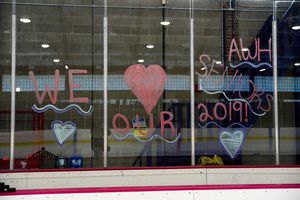 WE
OUR
AWH
SENIORS
2019!